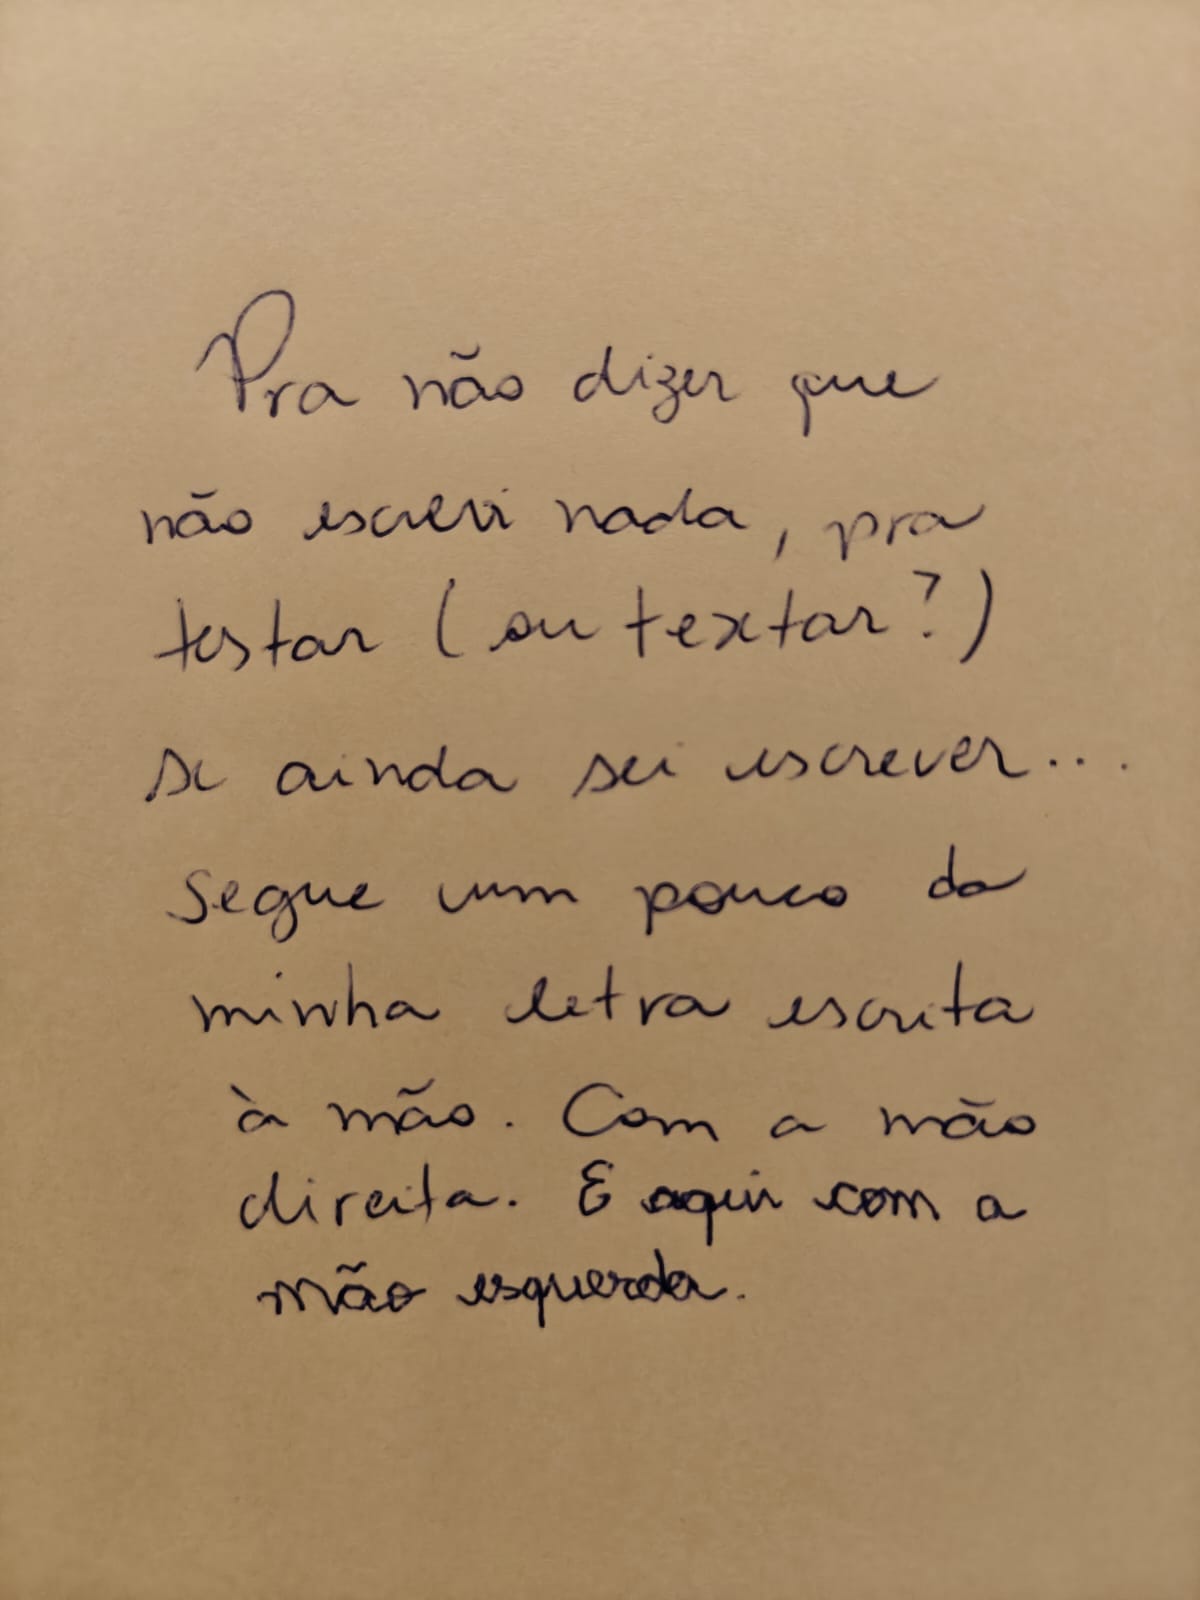 Pra não dizer que
não escrevi nada, pra
testar (ou textar?)
se ainda sei escrever...
segue um pouco da
minha letra escrita
à mão. Com a mão
direita. E aqui com a
mão esquerda.